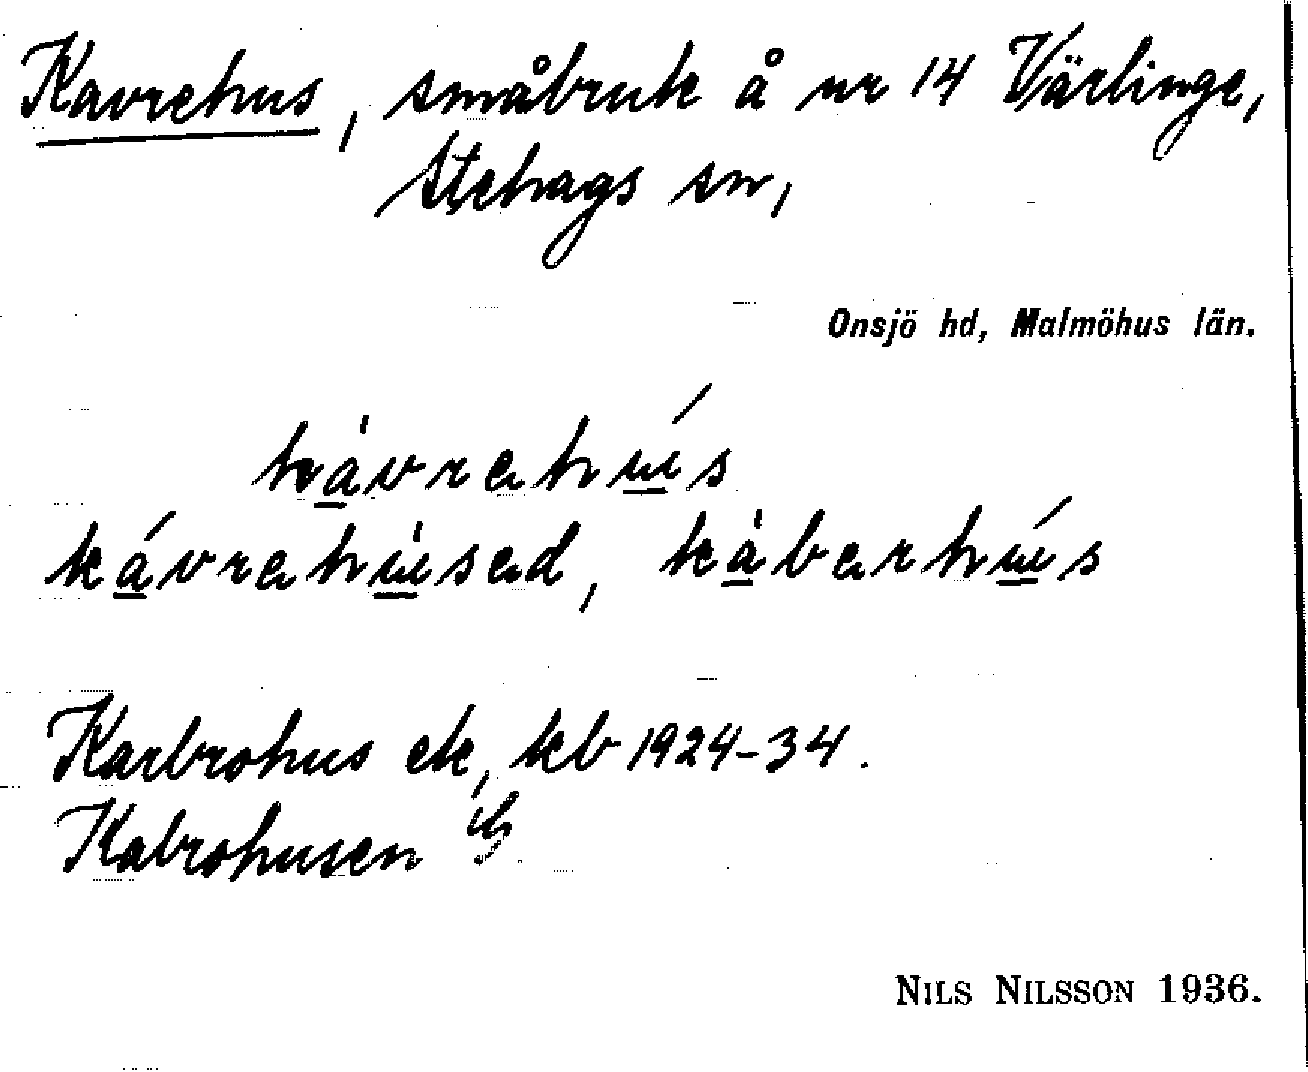 Kavrehus, småbruk å nr 14 Värlinge,
Stehags sn,
Onsjö hd, Malmöhus län.
kàvrehús
kávrehùsed, kàberhús
Karbrohus ek, kb 1924-34.
Kabrohusen
NILS NILSSON 1936.